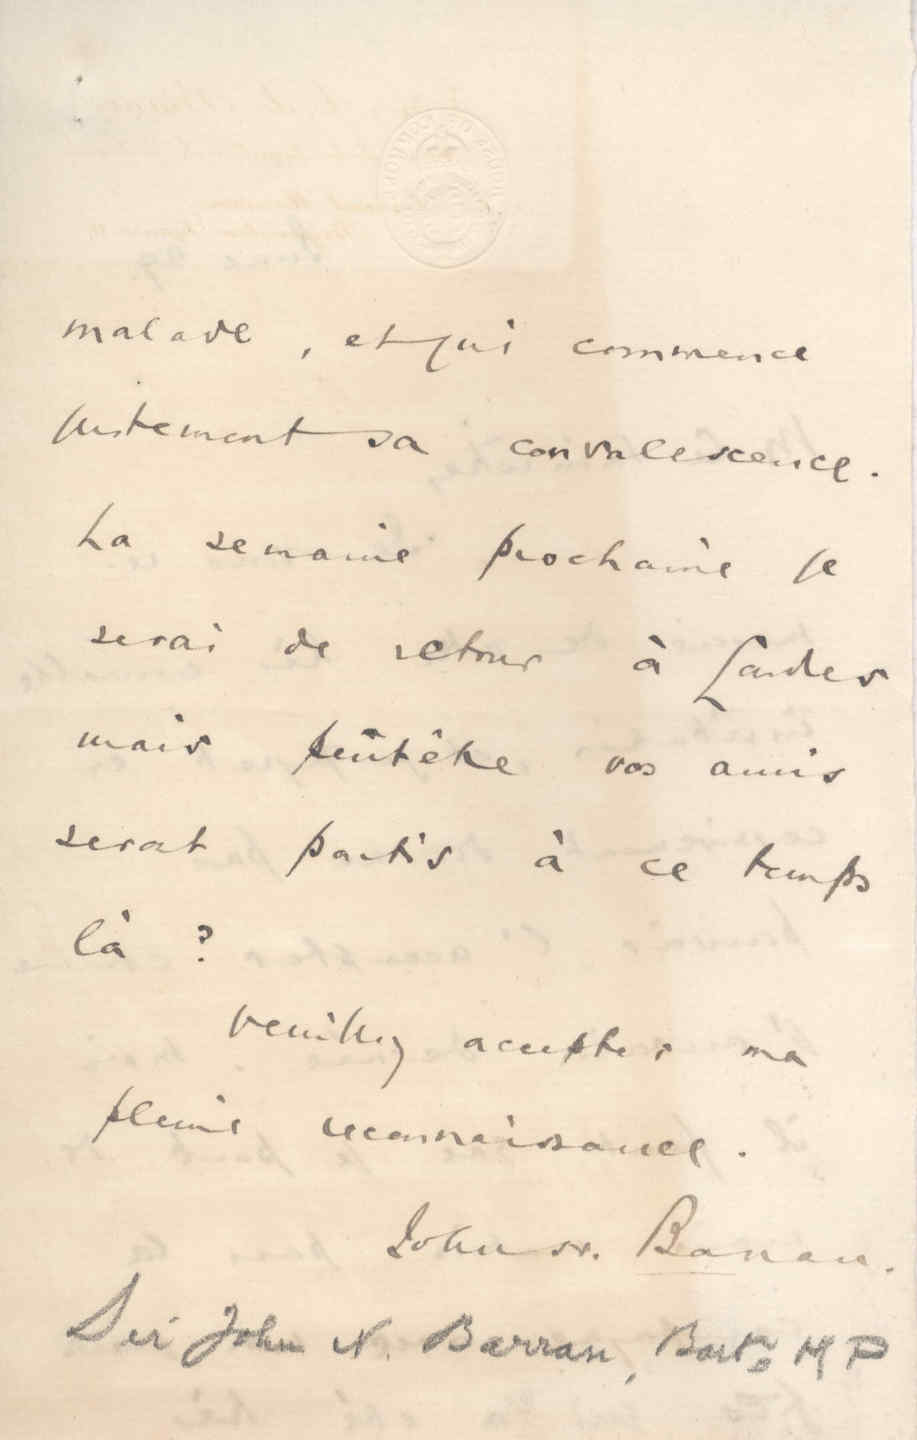 malade, et qui commence
justement sa convalescence.
La semaine prochaine je
serai de retour à Londres
mais peûtêtre vos amis
seront partis à ce temps
là ?
Veuillez accepter ma
pleine reconnaissance.
John N. Barran.
Sir John N. Barran, Bart. MP